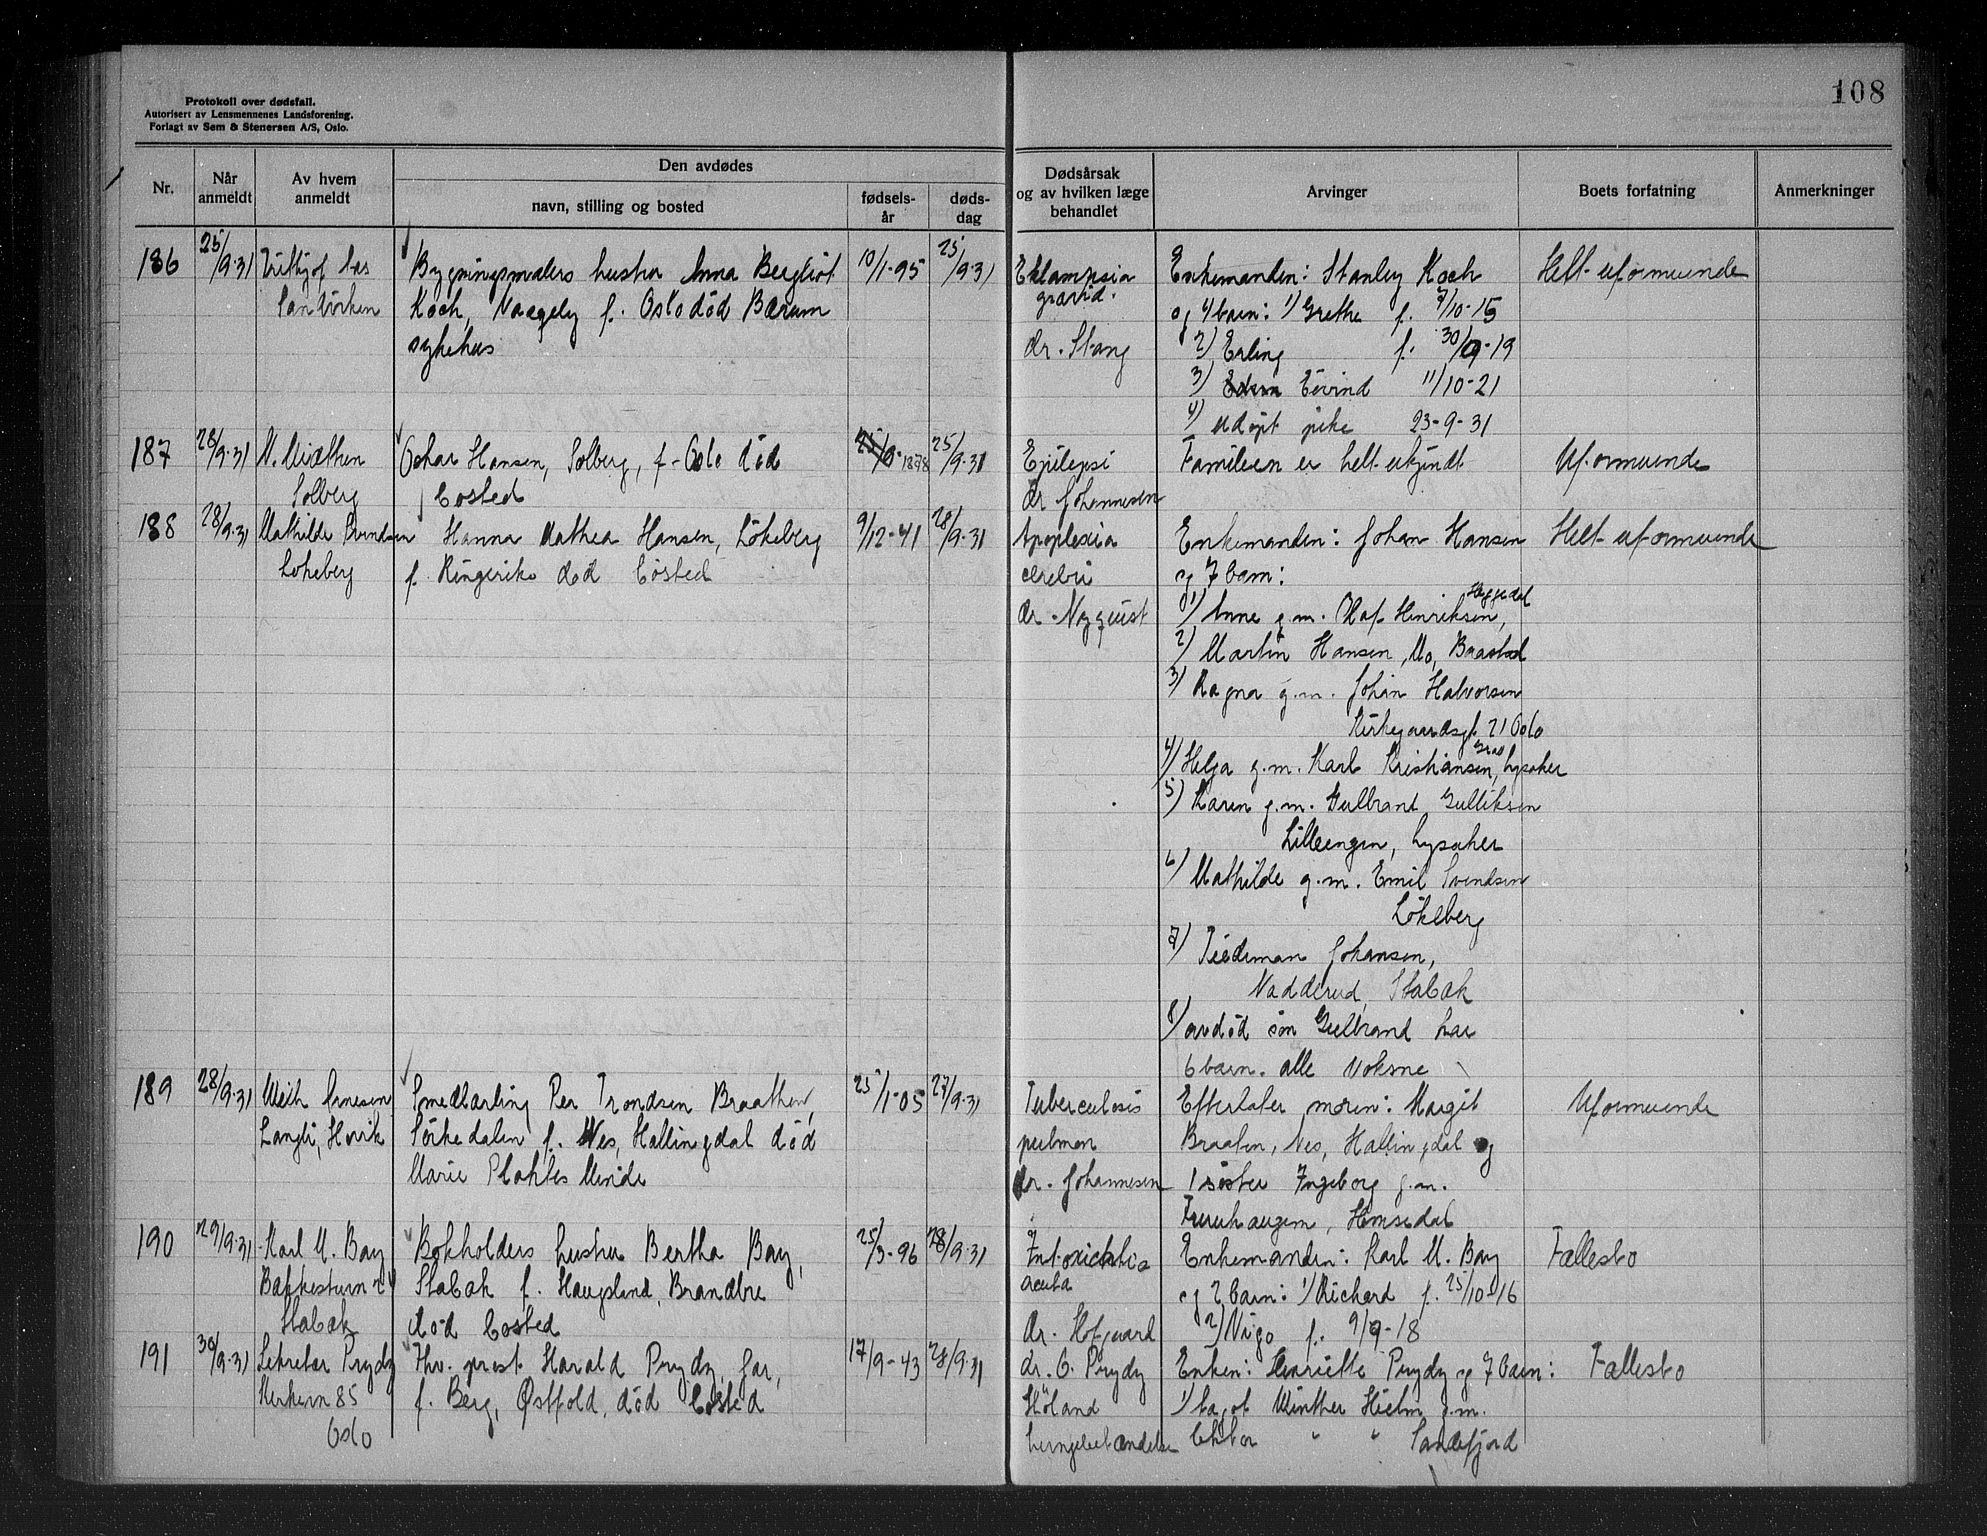 108
Protokoll over dødsfall.
Autorisert av Lensmennenes Landsforening.
Forlagt av Sem & Stenersen A/S, Oslo.
Nr.
Når anmeldt
Av hvem anmeldt
Den avdødes
navn, stilling og bosted
fødsels-år
døds-dag
Dødsårsak og av hvilken læge behandlet
Arvinger
Boets forfatning
Anmerkninger
186
25/9-31
Bygningsmalers hustru Anna Bergliot
Koch, f. Oslo død Bærum
sykehus
10/1-95
25/9-31
Eklampsia
gravid.
dr. Stang
Enkemanden: Stanley Koch
og 4 barn: 1) Grethe f. 7/10-15
2) Erling f. 30/9-19
3) Eivind 11/10-21
4) udøpt pike 23-9-31
Helt uformuende
187
28/9-31
Solberg
Oskar Hansen, Solberg, f. Oslo død
bosted
1878
25/9-31
Epilepsi
dr. Johannesen
Familien er helt ukjendt
Uformuende
188
28/9-31
Mathilde Svendsen
Løkeberg
Hanna Mathea Hansen, Løkeberg
f. Ringerike død bosted
9/12-41
28/9-31
Apoplexia
cerebri
dr. Nyquist
Enkemanden: Johan Hansen
og 7 barn:
1) Anne g.m. Olaf Henriksen,
2) Martin Hansen, Mo,
3) Ragna g.m. Johan Halvorsen
Kirkegaardsgt. 21 Oslo
4) Helga g.m. Karl Kristiansen, Lysaker
5) Karen g.m. Gulbrant Gulliksen
Lilleengen, Lysaker
6) Mathilde g.m. Emil Svendsen
Løkeberg
7) Tiedeman Johansen,
Nadderud, Stabæk
8) avdød søn Gulbrand har
6 barn. alle voksne
Helt uformuende
189
28/9-31
Arnesen
Høvik
Smedlærling Per Trondsen Braathen,
Sørkedalen f. Nes, Hallingdal død
Marie Plahtes Minde
25/1-05
27/9-31
Tuberculosis
pulmon
dr. Johannesen
Efterlater moren: Margit
Braaten, Nes, Hallingdal og
1 søster Ingeborg g.m.
Furuhaugen, Hemsedal
Uformuende
190
29/9-31
Karl M. Bay
Stabæk
Bokholders hustru Bertha Bay,
Stabæk f. Haugsland, Brandbu
død bosted
25/3-96
28/9-31
Intoxicatio
acuta
dr. Hofgaard
Enkemanden: Karl M. Bay
og 2 barn: 1) Richard f. 25/10-16
2) Vigo f. 9/9-18
Fællesbo
191
30/9-31
Sekretær Prydz
Kirkevn 85
Oslo
Fhv. prest Harald Prydz, Jar,
f. Berg, Østfold, død bosted
17/9-43
28/9-31
dr. O. Prydz
Høland
Lungebetændelse
Enken: Henriette Prydz og 7 barn:
1) Winther Hielm g.m.
lektor " " Sandefjord
Fællesbo